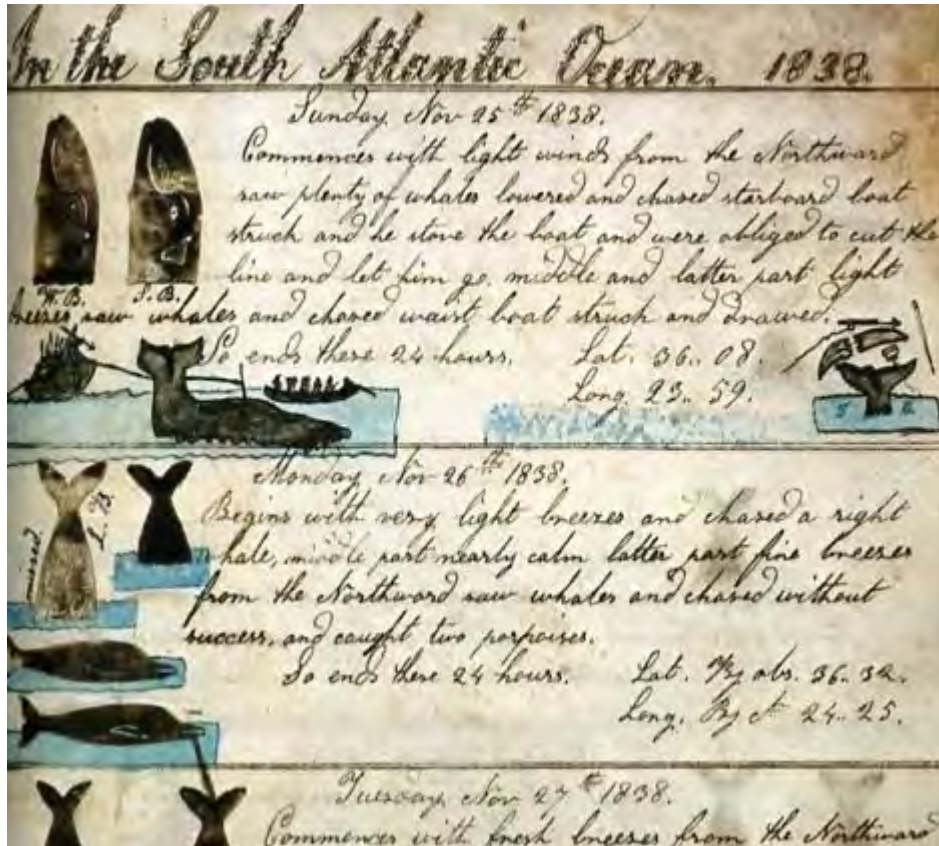 In the South Atlantic Ocean. 1838.
Sunday Nov 25th 1838.
Commences with light winds from the Northward
saw plenty of whales lowered and chased starboard boat
struck and he stove the boat and were obliged to cut the
line and let him go. middle and latter part light
W.B. S.B.
breezes saw whales and chased waist boat struck and drawed.
So ends these 24 hours. Lat. 36.. 08.
Long. 23.. 59.
Monday Nov 26th 1838.
L. B.
Begins with very light breezes and chased a right
missed
hale, middle part nearly calm latter part fine breezes
from the Northward saw whales and chased without
success, and caught two porpoises.
So ends these 24 hours. Lat. By obs. 36.. 32.
Long. By ct 24.. 25.
Tuesday Nov 27th 1838.
Commences with fresh breezes from the Northward